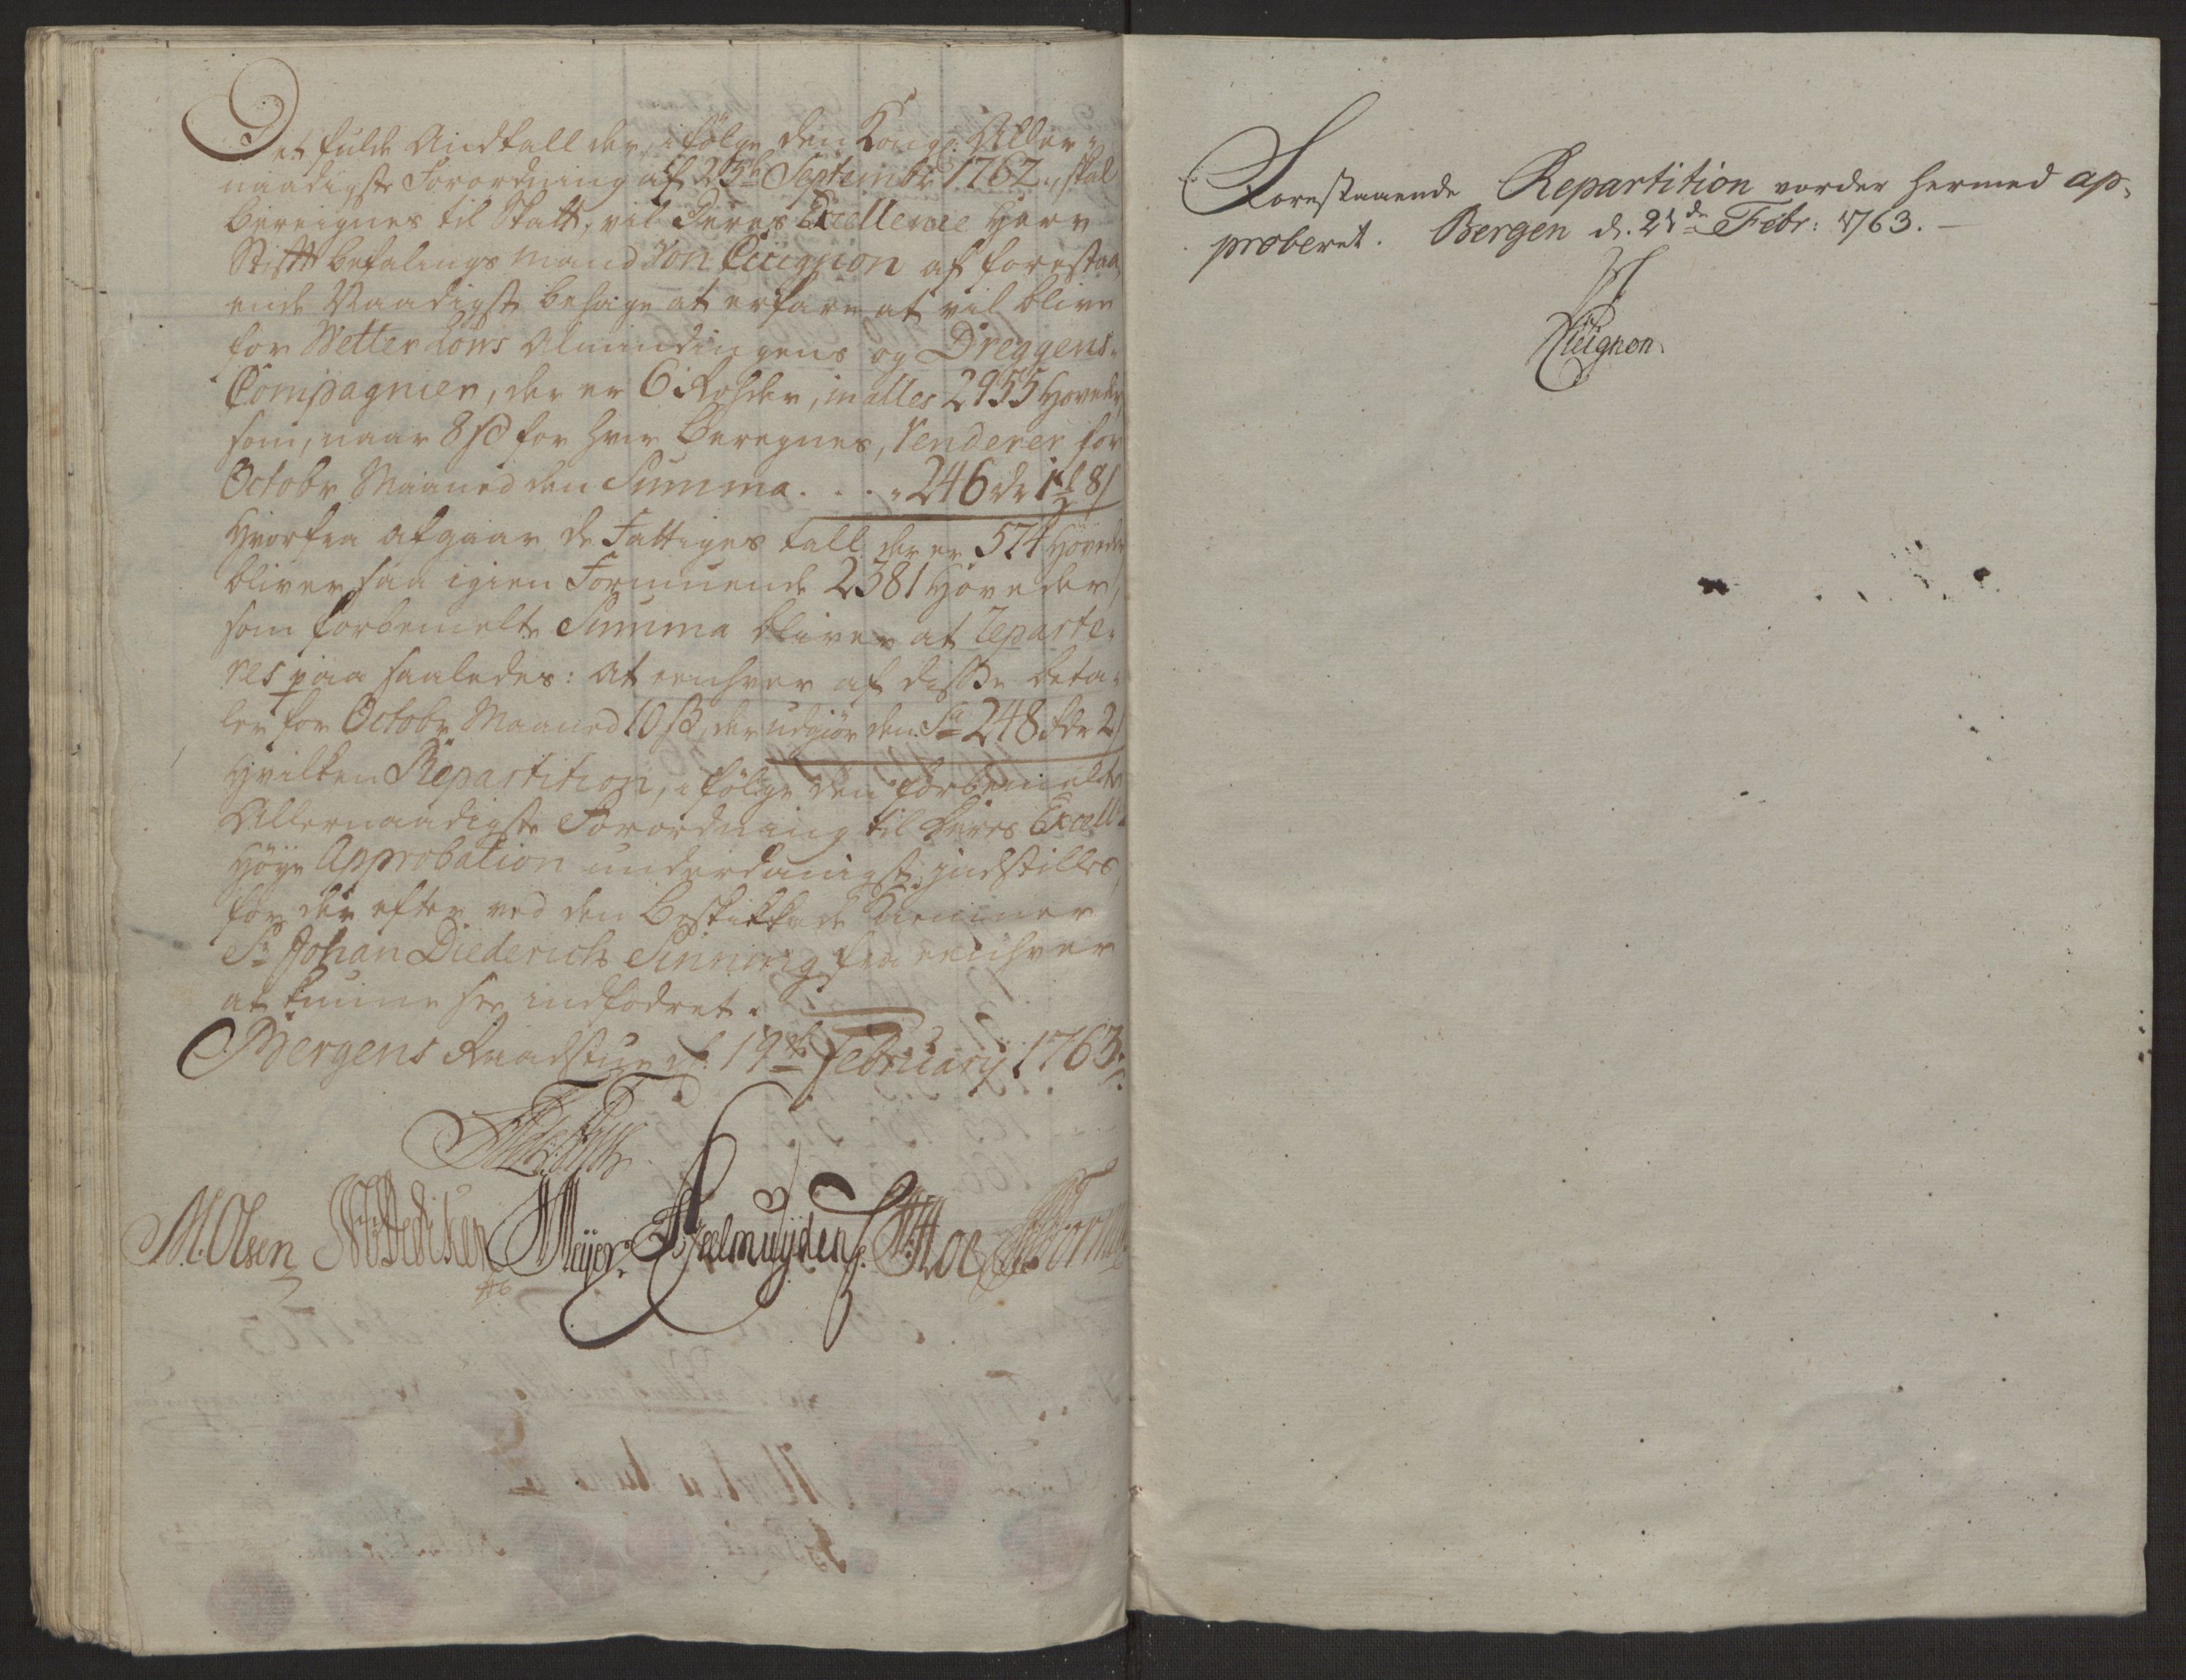 Det fulde Andtall der, ifölge den Kongl: Aller-
naadigste Forordning af 23de Septembr 1762, skal
beregnes til Skatt, vil Deres Excellence Herr
Stiftbefalings mand Von Cicignon af forestaa-
ende Naadigst behage at erfare at vil blive
for Wetter Löns Almindingens og Dreggens
Compagnier, der er 6 Rohder, in alles 2955 Hoveder,
som, naar 8 sk for hver beregnes, Renderer for
Octobr Maaned den Summa . . . . 246 dr 1 8 s
Hvorfra afgaar de Fattiges tall der er 574 Höveder
bliver saa igien Formuende 2381 Höveder,
som forbemelte Summa bliver at reparte-
res paa saaledes: at eenhver af disse beta-
ler for Octobr Maaned 10 s, der udgiör den Sa 248 dr 2
Hvilken Repartition, ifölge den forbemelte
Allernaadigste Forordning til Deres Excell:
Höye Approbation underdanigst indstilles,
for der efter ved den beskikkede Kemner
Sr Johan Diederich Sinning fra eenhver
at kunne See indfodret.
Bergens Raadstue d. 19de February 1763.
M. Olsen Meyer. Geelmuyden
Forestaaende Repartition vorder hermed ap-
proberet. Bergen d. 21de Febr: 1763.
Cicignon